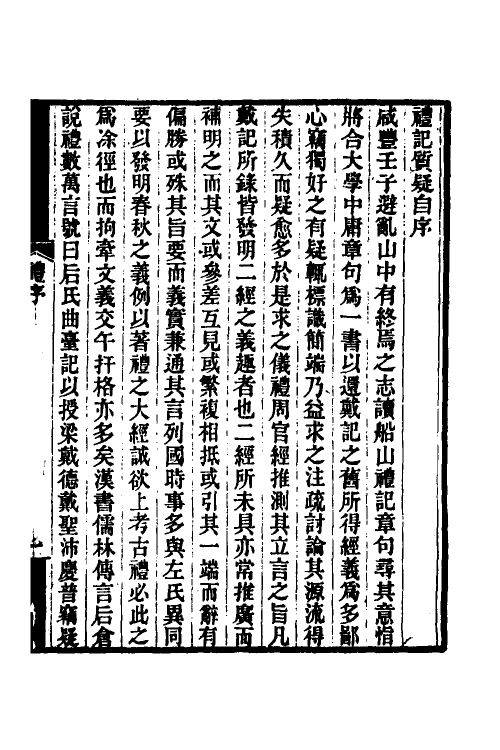 禮記質疑自序
咸豐壬子避亂山中有終焉之志讀船山禮記章句尋其意恉
將合大學中庸章句爲一書以還戴記之舊所得經義爲多鄙
心竊獨好之有疑輒標識簡端乃益求之注疏討論其源流得
失積久而疑愈多於是求之儀禮周官經推測其立言之旨凡
戴記所錄皆發明二經之義趣者也二經所未具亦常推廣而
補明之而其文或參差互見或繁複相抵或引其一端而辭有
偏勝或殊其旨要而義實兼通其言列國時事多與左氏異同
要以發明春秋之義例以著禮之大經誠欲上考古禮必此之
爲涂徑也而拘牽文義交午扞格亦多矣漢書儒林傳言后倉
說禮數萬言號曰后氏曲臺記以授梁戴德戴聖沛慶普竊疑
禮序
一